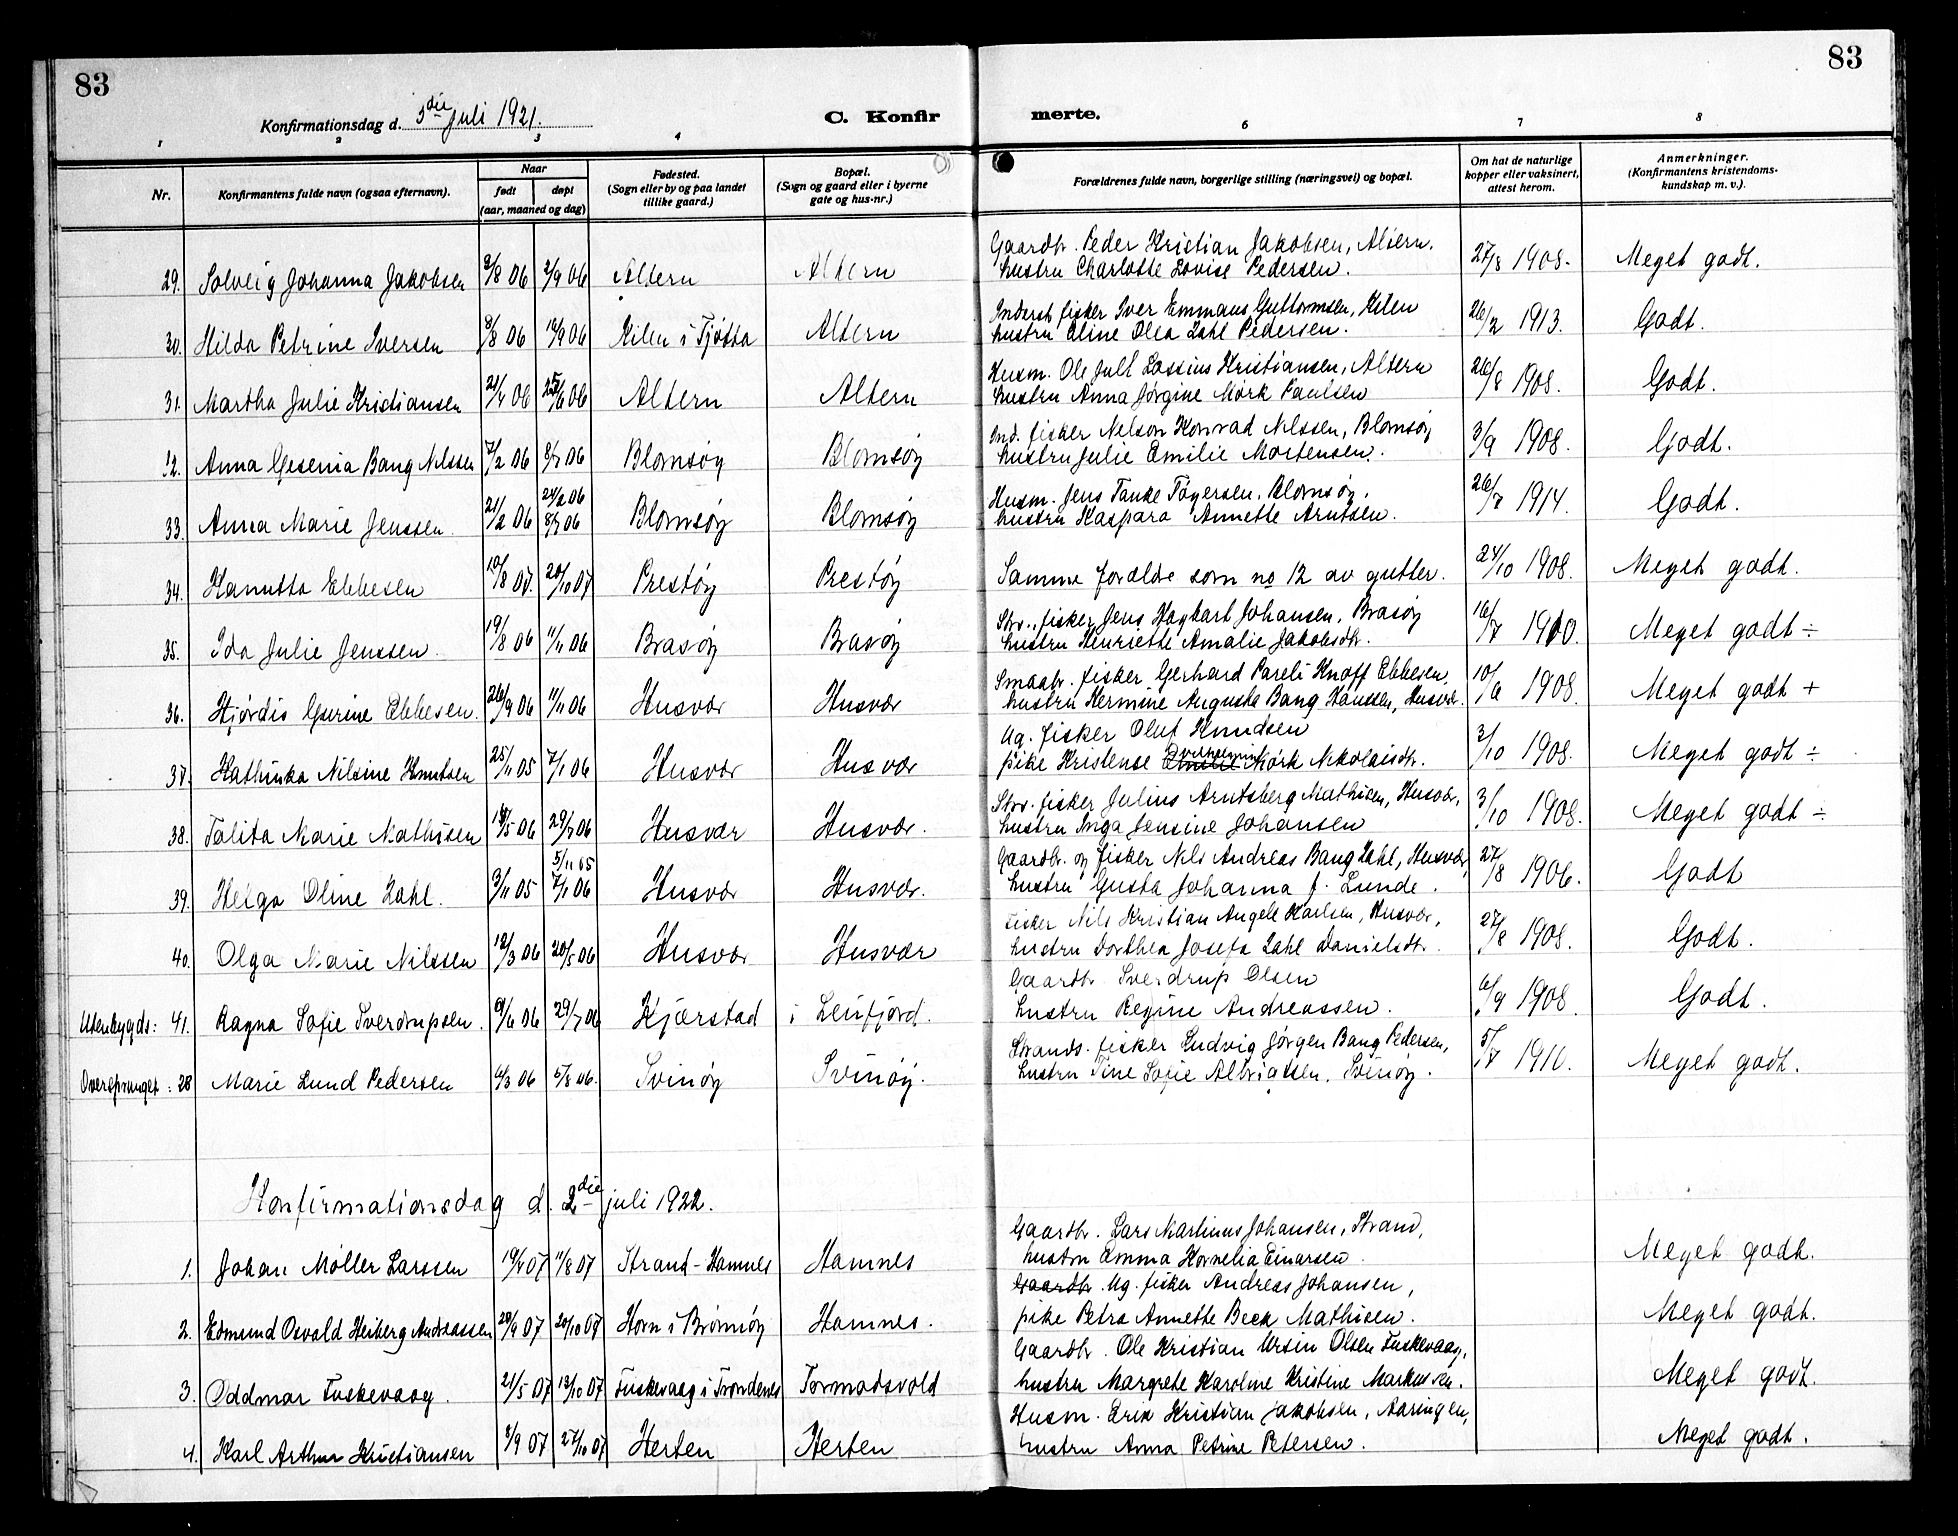 83
83
Konfirmationsdag d. 3die juli 1921.
C. Konfir
merte.
1 2 3 4 6 7 8
Nr.
Konfirmantens fulde navn (ogsaa efternavn).
Naar
født
døpt
(aar, maaned og dag)
Fødested.
(Sogn eller by og paa landet
tillike gaard.)
Bopæl.
(Sogn og gaard eller i byerne
gate og hus-nr.)
Forældrenes fulde navn, borgerlige stilling (næringsvei) og bopæl.
Om hat de naturlige
kopper eller vaksinert,
attest herom.
Anmerkninger.
(Konfirmantens kristendoms-
kundskap m. v.).
Gaardbr. Peder Kristian Jakobsen, Altern,
29. Solveig Johanna Jakobsen 2/8 06 2/9 06 Altern Altern hustru Charlotte Lovise Pedersen. 27/8 1908. Meget godt.
Inderst fisker Iver Emmaus Guttormsen, Kilen
30. Hilda Petrine Iversen 8/8 06 12/9 06 Kilen i Tjøtta Altern hustru Eline Olea Zahl Pedersen. 26/2 1913. Godt.
Husm. Ole Jull Lossius Kristiansen, Altern
31. Martha Julie Kristiansen 21/4 06 25/6 06 Altern Altern hustru Anna Jørgine Mørk Paulsen 26/8 1908. Godt.
Ind. fisker Nelson Konrad Nilssen, Blomsøy
32. Anna Gesenia Bang Nilssen 7/2 06 8/7 06 Blomsøy Blomsøy hustru Julie Emilie Mortensen. 3/9 1908. Godt.
Husm. Jens Tanke Tøgersen, Blomsøy,
24/2 06
33. Anna Marie Jenssen. 21/2 06 8/7 06 Blomsøy Blomsøy hustru Kaspara Annette Arntsen. 26/7 1914. Godt.
34. Hanutta Ebbesen 10/8 07. 20/10 07 Prestøy Prestøy Samme forældre som no 12 av gutter. 24/10 1908. Meget godt.
Strs. fisker Jens Hagbart Johansen, Brasøy
35. Ida Julie Jenssen. 19/8 06 11/11 06 Brasøy Brasøy hustru Henriette Amalie Jakobsdtr. 16/7 1910. Meget godt ÷
Smaabr. fisker Gerhard Pareli Knoff Ebbesen,
36. Hjørdis Gurine Ebbesen. 26/9 06 11/11 06 Husvær Husvær hustru Hermine Augusta Bang Hanssen, Husvær. 10/9 1908. Meget godt +
Ug. fisker Oluf Knudsen
37. Kathinka Nilsine Knutsen 25/11 05 7/1 06 Husvær Husvær pike Kristense Vilhelmine Mørk Nikolaisdtr. 3/10 1908. Meget godt ÷
Strs. fisker Julius Arntsberg Mathisen, Husvær,
38. Talita Marie Mathisen 18/5 06 29/7 06 Husvær Husvær. hustru Inga Jensine Johansen 3/10 1908. Meget godt ÷
Gaardbr. og fisker Nils Andreas Bang Zahl, Husvær,
5/11 05
39. Helga Oline Zahl. 3/11 05 7/1 06 Husvær Husvær. hustru Gusta Johanna f. Lunde. 27/8 1906. Godt
Fisker Nils Kristian Angell Karlsen, Husvær,
40. Olga Marie Nilssen 12/3 06 20/5 06 Husvær Husvær hustru Dorthea Josefa Zahl Danielsdtr. 27/8 1908. Godt.
Gaardbr. Sverdrup Olsen
Utenbygds: 41. Ragna Sofie Sverdrupsen. 9/6 06 29/7 06 Kjærstad i Leirfjord. hustru Regine Andreassen. 6/9 1908. Godt.
Strands. fisker Ludvig Jørgen Bang Pedersen,
Oversprunget: 28 Marie Lund Pedersen 4/3 06 5/8 06. Svinøy Svinøy. hustru Tine Sofie Albriatsen, Svinøy. 5/7 1910. Meget godt.
Konfirmationsdag d. 2die juli 1922.
Gaardbr. Lars Martinus Johansen, Strand,
1. Johan Møller Larssen 19/4 07 11/8 07 Strand - Hamnes Hamnes hustru Emma Kornelia Einarsen. Meget godt.
Gaardbr. Ug. fisker Andreas Johansen,
2. Edmund Osvald Heiberg Andreassen 28/9 07 20/10 07 Horn i Brønnøy Hamnes. pike Petra Annette Beck Mathisen. Meget godt.
Gaardbr. Ole Kristian Ursin Olsen Fuskevaag,
3. Oddmar Fuskevaag. 21/5 07 13/10 07 Fuskevaag i Trondenes Tormodsvold hustru Margrete Karoline Kristine Markussen. Meget godt.
Husm. Erik Kristian Jakobsen, Aaringen,
4. Karl Arthur Kristiansen 3/9 07 27/10 07 Herten Herten hustru Anna Petrine Petersen. Meget godt.